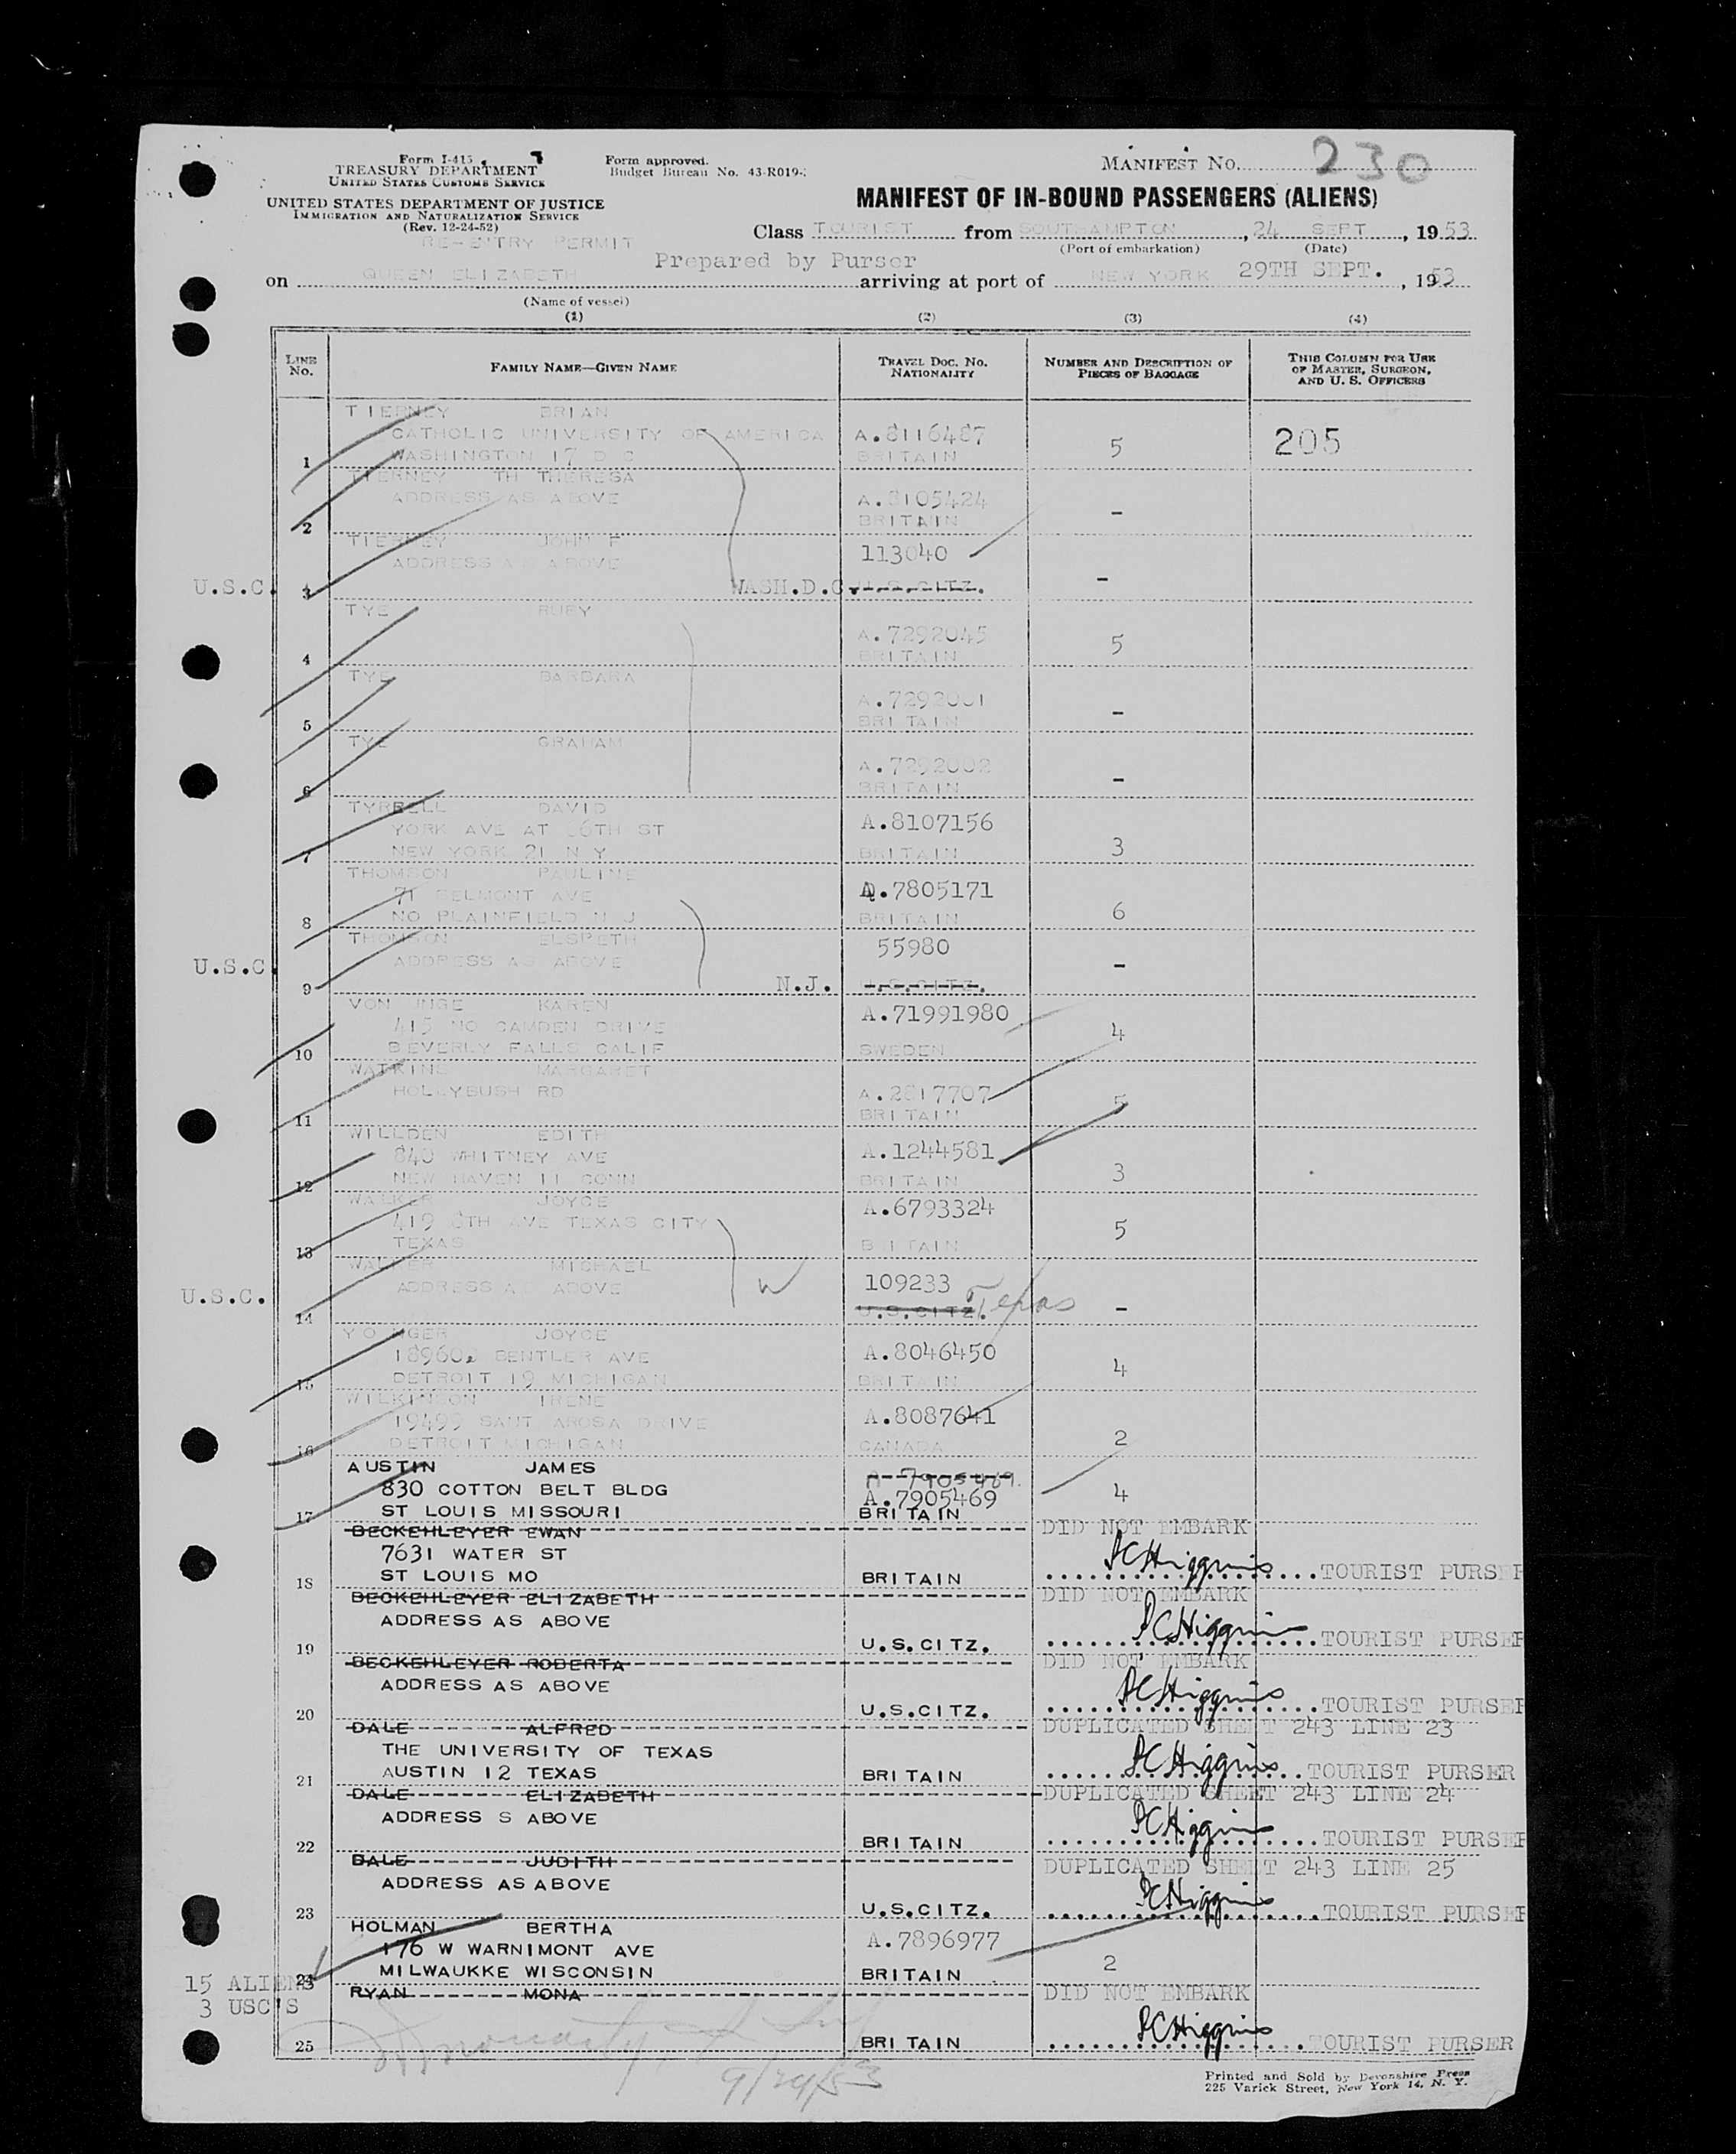 Form I-415
TREASURY DEPARTMENT
UNITED STATES CUSTOMS SERVICE
UNITED STATES DEPARTMENT OF JUSTICE
IMMIGRATION AND NATURALIZATION SERVICE
(Rev. 12-24-52)
RE-ENTRY PERMIT
Form approved.
Budget Bureau No. 43-R019-
MANIFEST No. 230
MANIFEST OF IN-BOUND PASSENGERS (ALIENS)
Class TOURIST from SOUTHAMPTON, 24 SEPT, 1953
(Port of embarkation) (Date)
Prepared by Purser
on QUEEN ELIZABETH arriving at port of NEW YORK 29TH SEPT., 1953
(Name of vessel)
(1) (2) (3) (4)
LINE No. FAMILY NAME—GIVEN NAME TRAVEL DOC. NO. NATIONALITY NUMBER AND DESCRIPTION OF PIECES OF BAGGAGE THIS COLUMN FOR USE OF MASTER, SURGEON, AND U. S. OFFICERS
TIERNEY BRIAN
CATHOLIC UNIVERSITY OF AMERICA A.8116487 5 205
1 WASHINGTON 17 D C BRITAIN
TIERNEY TH THERESA
ADDRESS AS ABOVE A.8105424 -
2 BRITAIN
TIERNEY JOHN F 113040
ADDRESS AS ABOVE -
U.S.C. 3 WASH.D.C. U.S.CITZ.
TYE RUBY
A.7292045 5
4 BRITAIN
TYE BARBARA
A.7292001 -
5 BRITAIN
TYE GRAHAM
A.7292002 -
6 BRITAIN
TYRRELL DAVID A.8107156
YORK AVE AT 66TH ST
7 NEW YORK 21 N Y BRITAIN 3
THOMSON PAULINE A.7805171
71 BELMONT AVE
8 NO PLAINFIELD N J BRITAIN 6
THOMSON ELSPETH 55980
U.S.C. ADDRESS AS ABOVE -
9 N.J. U.S.CITZ.
VON UNGE KAREN A.71991980
415 NO CAMDEN DRIVE 4
10 BEVERLY FALLS CALIF SWEDEN
WATKINS MARGARET
HOLLYBUSH RD A.2817707 5
11 BRITAIN
WILLDEN EDITH A.1244581
840 WHITNEY AVE 3
12 NEW HAVEN 11 CONN BRITAIN
WALKER JOYCE A.6793324
419 8TH AVE TEXAS CITY 5
13 TEXAS BRITAIN
WALKER MICHAEL 109233
U.S.C. ADDRESS AS ABOVE W -
14 U.S.CITZ. Texas
YOUNGER JOYCE A.8046450
18960 BENTLER AVE 4
15 DETROIT 19 MICHIGAN BRITAIN
WILKINSON IRENE A.8087641
19499 SANT AROSA DRIVE
16 DETROIT MICHIGAN CANADA 2
AUSTIN JAMES A 7905469.
830 COTTON BELT BLDG A.7905469 4
17 ST LOUIS MISSOURI BRITAIN
BECKEHLEYER EWAN DID NOT EMBARK
7631 WATER ST
18 ST LOUIS MO BRITAIN PCHiggins TOURIST PURSER
BECKEHLEYER ELIZABETH DID NOT EMBARK
ADDRESS AS ABOVE
19 U.S.CITZ. PCHiggins TOURIST PURSER
BECKEHLEYER ROBERTA DID NOT EMBARK
ADDRESS AS ABOVE
20 U.S.CITZ. PCHiggins TOURIST PURSER
DALE ALFRED DUPLICATED SHEET 243 LINE 23
THE UNIVERSITY OF TEXAS
21 AUSTIN 12 TEXAS BRITAIN PCHiggins TOURIST PURSER
DALE ELIZABETH DUPLICATED SHEET 243 LINE 24
ADDRESS S ABOVE
22 BRITAIN PCHiggins TOURIST PURSER
DALE JUDITH DUPLICATED SHEET 243 LINE 25
ADDRESS AS ABOVE
23 U.S.CITZ. PCHiggins TOURIST PURSER
HOLMAN BERTHA A.7896977
176 W WARNIMONT AVE 2
15 ALIENS 24 MILWAUKKE WISCONSIN BRITAIN
3 USC'S RYAN MONA DID NOT EMBARK
25 BRITAIN PCHiggins TOURIST PURSER
9/29/53
Printed and Sold by Devonshire Press
225 Varick Street, New York 14, N. Y.